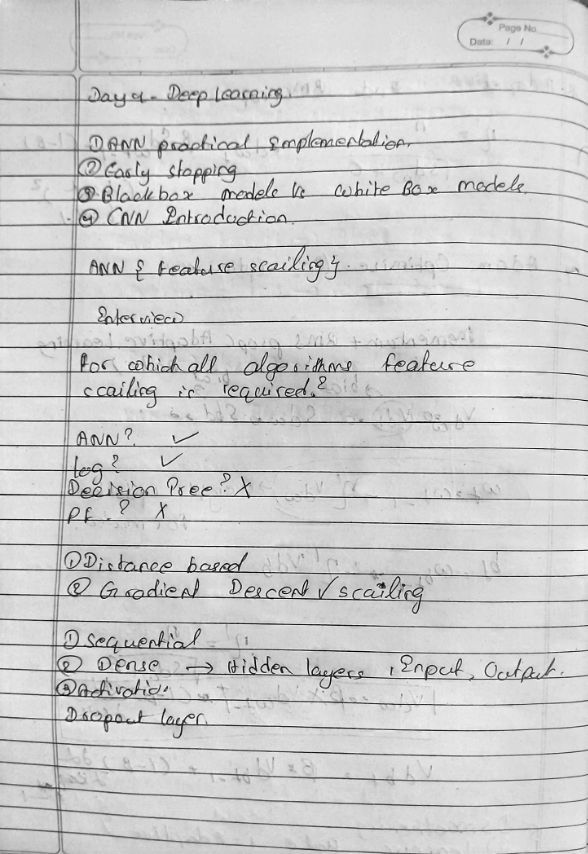 Page No.
Date: / /
Day 4 - Deep Learning
① ANN practical Implementation.
② Early stopping
③ Black box models Vs white Box models
④ CNN Introduction.
ANN { Feature scailing }
Interview
For which all algorithms feature
scailing is required.?
ANN? ✓
Log? ✓
Decision Tree? X
RF.? X
① Distance based
② Gradient Descent ✓ scailing
① Sequential
② Dense → Hidden layers, Input, Output.
③ Activation
Dropout layer.